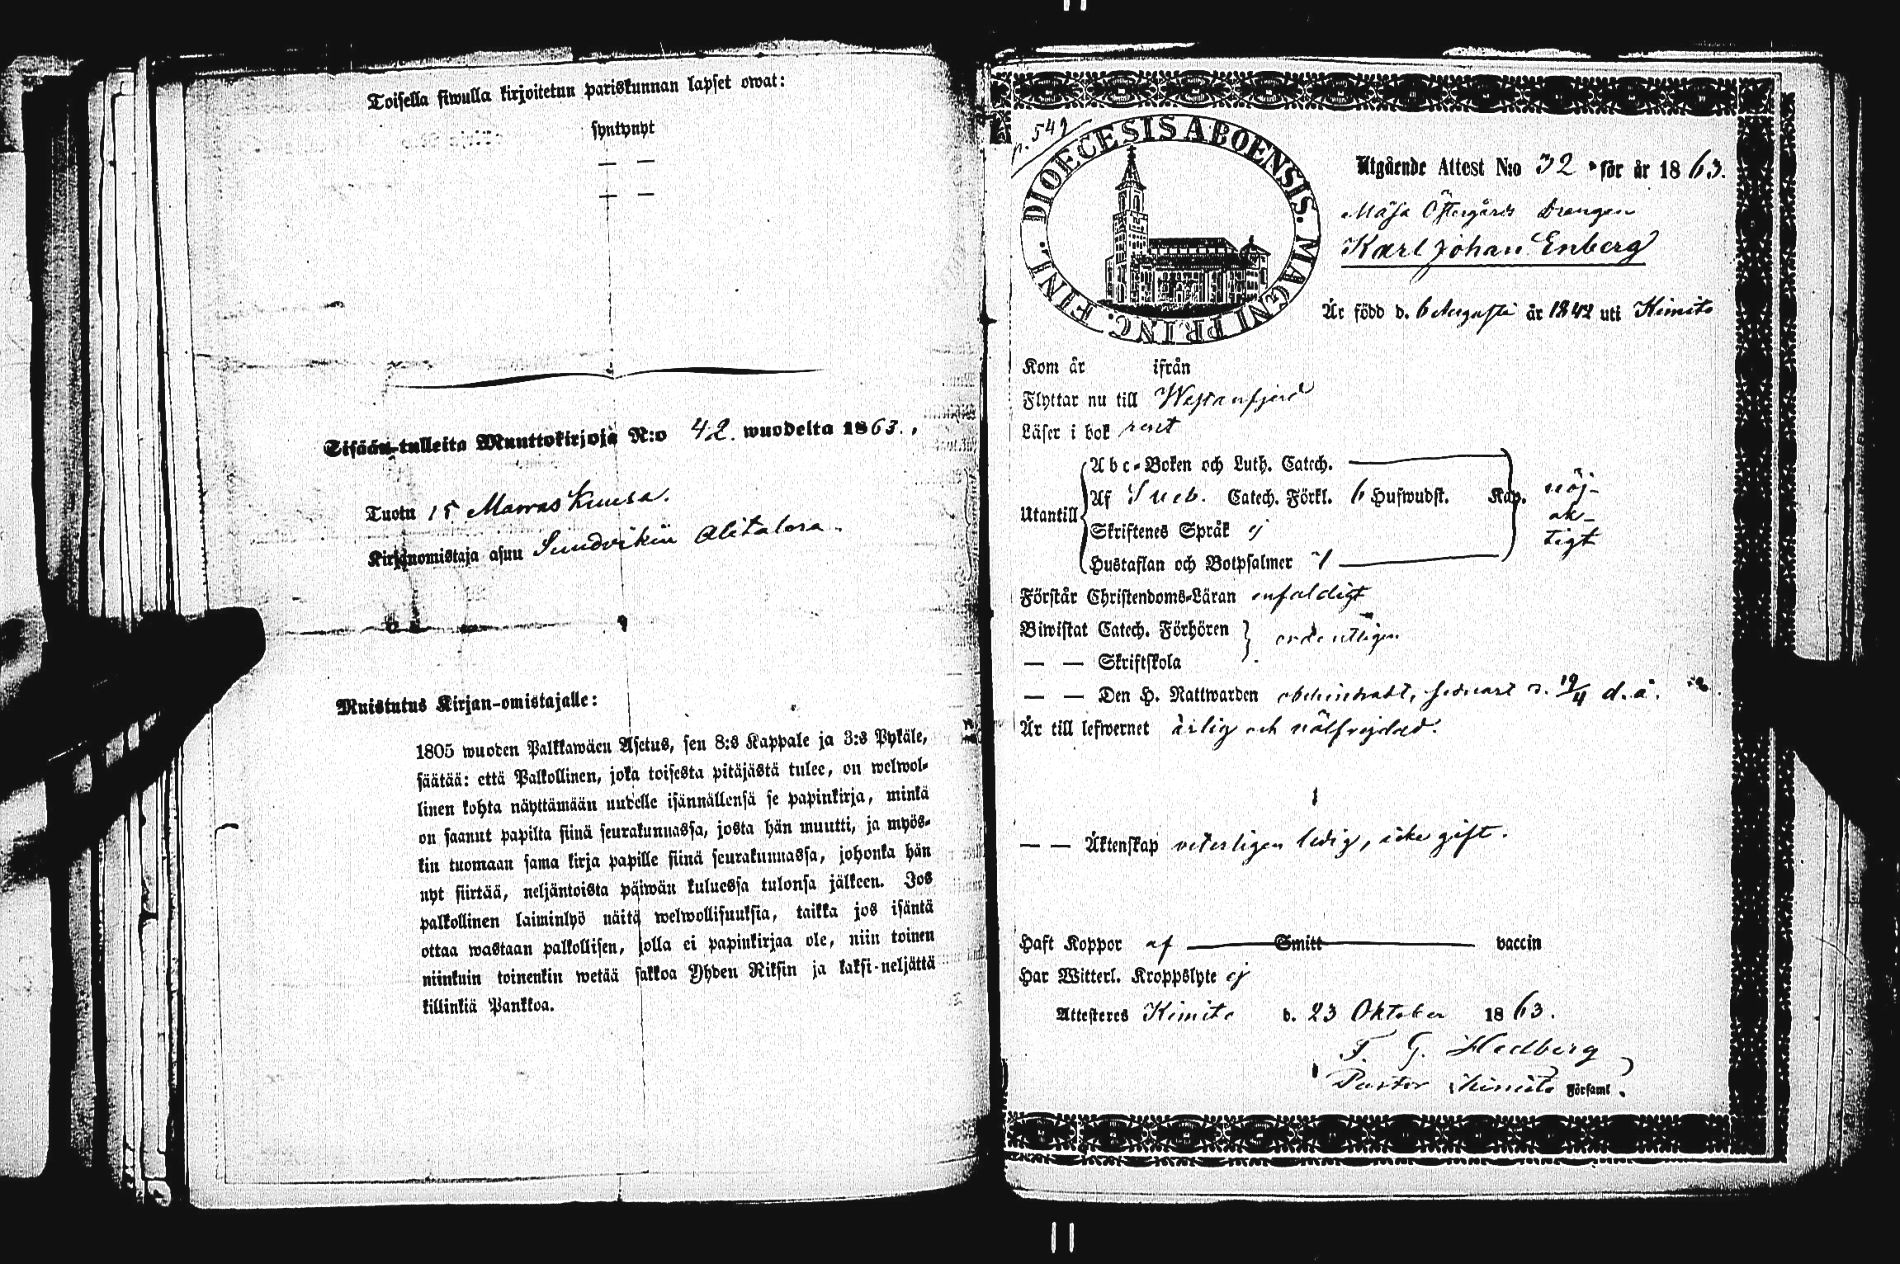 Toisella siwulla kirjoitetun pariskunnan lapset owat:
syntynyt
— —
— —
Sisään-tulleita Muuttokirjoja N:o 42. wuodelta 1863.
Tuotu 15 Marras Kuusa.
Kirjanomistaja asuu Sundvikin Alitalosa.
Muistutus Kirjan-omistajalle:
1805 wuoden Palkkawäen Asetus, sen 8:s Kappale ja 3:s Pykäle,
säätää: että Palkollinen, joka toisesta pitäjästä tulee, on welwol-
linen kohta näyttämään uudelle isännällensä se papinkirja, minkä
on saanut papilta siinä seurakunnassa, josta hän muutti, ja myös-
kin tuomaan sama kirja papille siinä seurakunnassa, johonka hän
nyt siirtää, neljäntoista päiwän kuluessa tulonsa jälkeen. Jos
palkollinen laiminlyö näitä welwollisuuksia, taikka jos isäntä
ottaa wastaan palkollisen, jolla ei papinkirjaa ole, niin toinen
niinkuin toinenkin wetää sakkoa Yhden Riksin ja kaksi-neljättä
killinkiä Pankkoa.
p. 542
DIOECESIS ABOENSIS. MAGNI PRINC. FINL.
Utgående Attest N:o 32 för år 1863.
Östergårds Drengen
Karl Johan Enberg
Är född d. 6 Augusti år 1842 uti Kimito
Kom år ifrån
Flyttar nu till Westanfjerd
Läser i bok rent
Utantill
Abc-Boken och Luth. Catech.
Af Sveb. Catech. Förkl. 6 Hufwudst. Kap.
Skriftenes Språk ej
Hustaflan och Botpsalmer
nöj-
ak-
tigt
Förstår Christendoms-Läran enfaldigt
Biwistat Catech. Förhören
— — Skriftskola
ordentligen
— — Den H. Nattwarden obehindradt, senast d. 19/4 d. å.
Är till lefwernet ärlig och välfrejdad.
— — Äktenskap veterligen ledig, icke gift.
Haft Koppor af Smitt vaccin
Har Witterl. Kroppslyte ej
Attesteres Kimito d. 23 Oktober 1863.
F. G. Hedberg
Pastor i Kimito Församl.